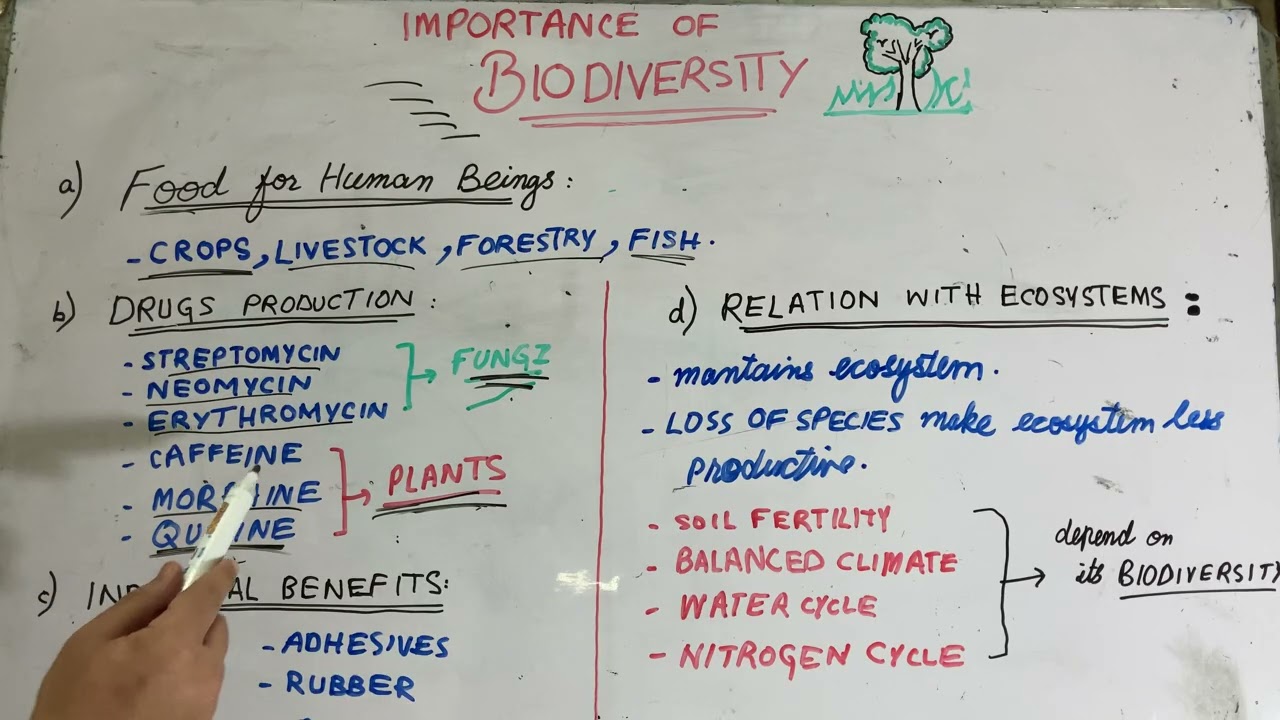 IMPORTANCE OF
BIODIVERSITY
a) Food for Human Beings:
- CROPS, LIVESTOCK, FORESTRY, FISH.
b) DRUGS PRODUCTION:
- STREPTOMYCIN
- NEOMYCIN
- ERYTHROMYCIN
FUNGI
- CAFFEINE
- MORPHINE
- QUININE
PLANTS
c) BENEFITS:
- ADHESIVES
- RUBBER
d) RELATION WITH ECOSYSTEMS:
- mantains ecosystem.
- LOSS OF SPECIES make ecosystem less
productive.
- SOIL FERTILITY
- BALANCED CLIMATE
- WATER CYCLE
- NITROGEN CYCLE
depend on
its BIODIVERSITY